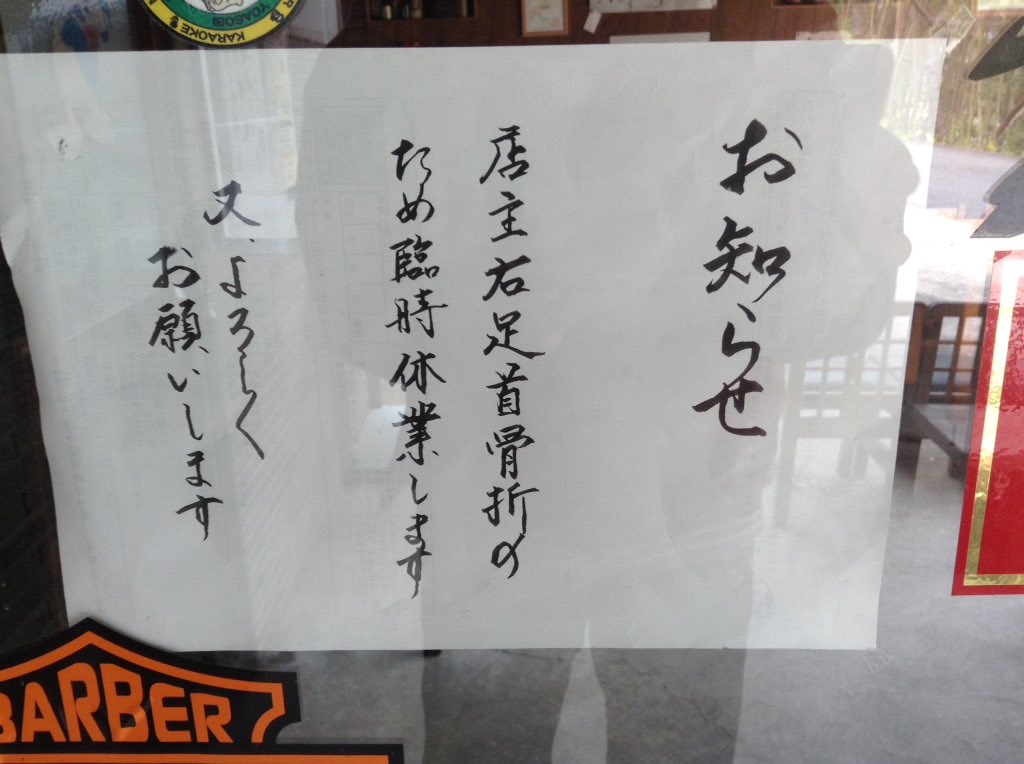 お知らせ
店主右足首骨折の
ため臨時休業します
又、よろしく
お願いします
YOASOBI
KARAOKE
BARBER